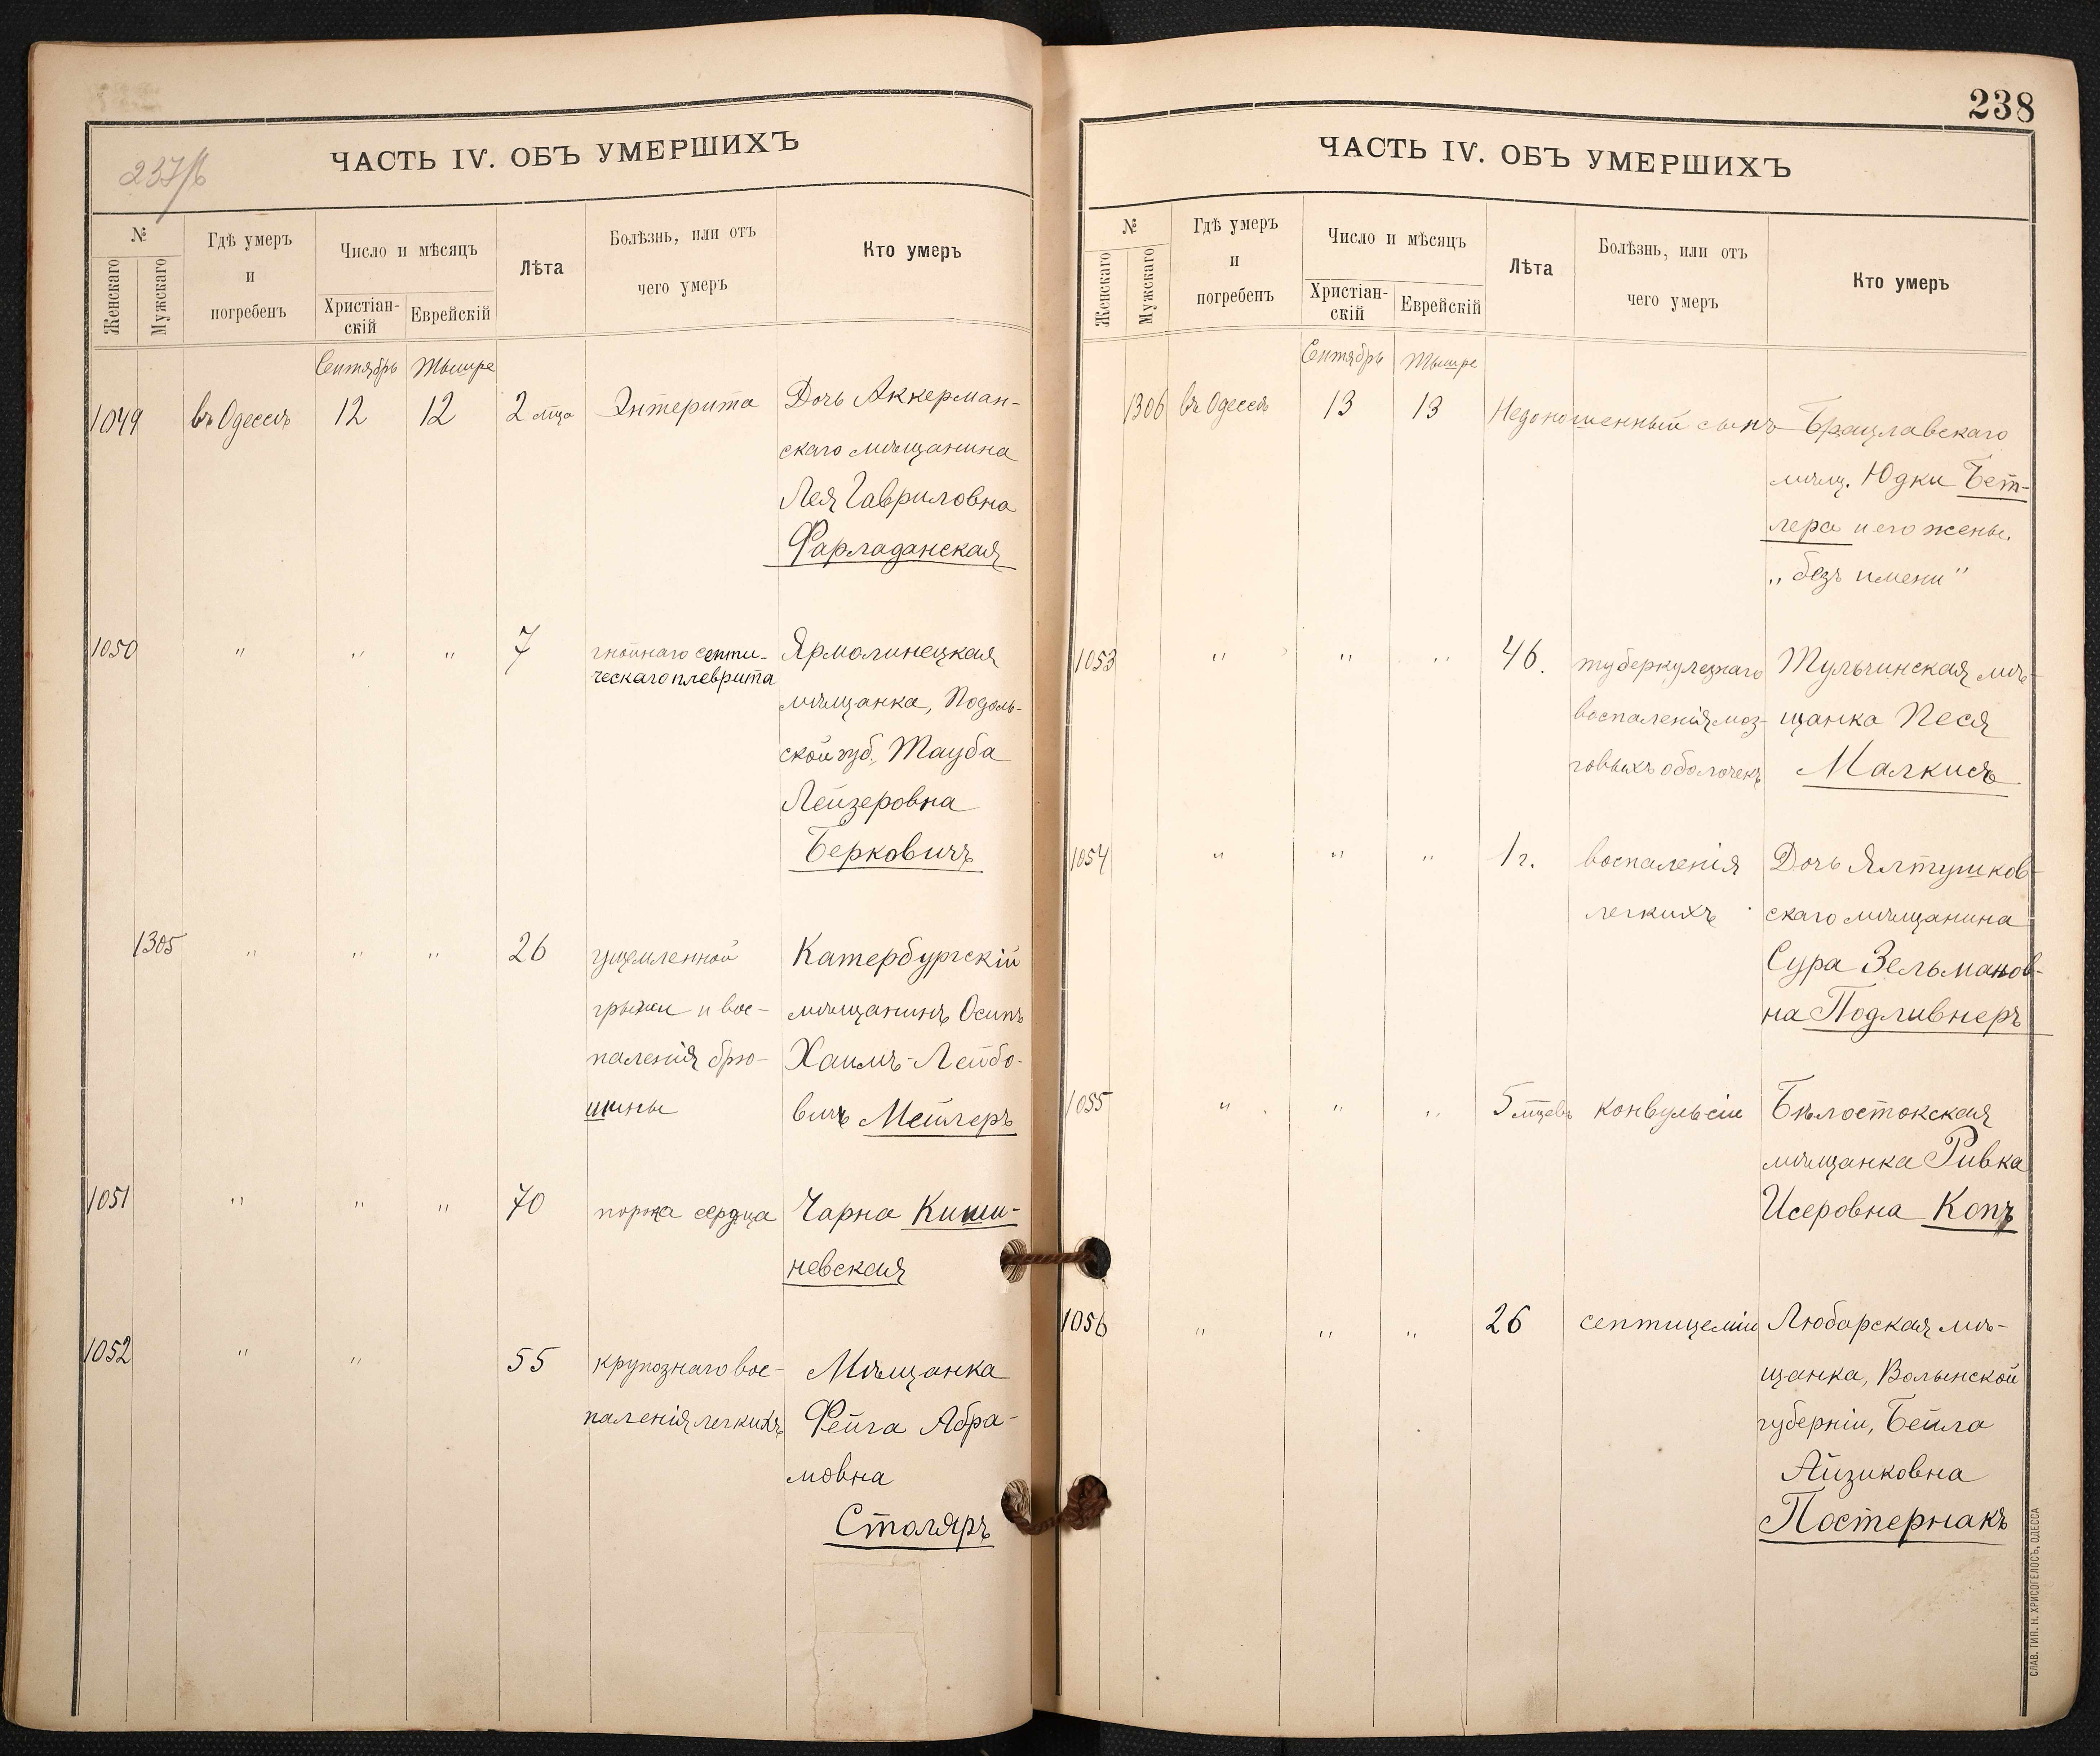 237/б
ЧАСТЬ IV. ОБЪ УМЕРШИХЪ
№
Женскаго
Мужскаго
Гдѣ умеръ
и
погребенъ
Число и мѣсяцъ
Христіан-
скій
Еврейскій
Лѣта
Болѣзнь, или отъ
чего умеръ
Кто умеръ
Сентябрь Тышре
1049 въ Одессѣ 12 12 2 мѣца Энтерита Дочь Аккерман-
скаго мѣщанина
Лея Гавриловна
Фарладанская
1050 " " " 7 гнойнаго септи- Ярмолинецкая
ческаго плеврита
мѣщанка, Подоль-
ской губ., Тауба
Лейзеровна
Берковичъ
1305 " " " 26 ущемленной Катербургскій
грыжи и вос- мѣщанинъ Осипъ
паленія брю- Хаимъ-Лейбо-
шины вичъ Мейлеръ
1051 " " " 70 порока сердца Чарна Киши-
невская
1052 " " 55 крупознаго вос- Мѣщанка
паленія легкихъ Фейга Абра-
мовна
Столяръ
238
ЧАСТЬ IV. ОБЪ УМЕРШИХЪ
№
Женскаго
Мужскаго
Гдѣ умеръ
и
погребенъ
Число и мѣсяцъ
Христіан-
скій
Еврейскій
Лѣта
Болѣзнь, или отъ
чего умеръ
Кто умеръ
Сентябрь Тышре
1306 въ Одессѣ 13 13 Недоношенный сынъ Брацлавскаго
мѣщ. Юдки Бет-
лера и его жены.
„безъ имени"
1053 " " " 46. туберкулезнаго Тульчинская мѣ-
воспаленія моз- щанка Песя
говыхъ оболочекъ Малкисъ
1054 " " " 1 г. воспаленія Дочь Ялтушков-
легкихъ скаго мѣщанина
Сура Зельманов-
на Подливнеръ
1055 " " " 5 мѣцевъ конвульсіи Бѣлостокская
мѣщанка Ривка
Исеровна Копъ
1056 " " " 26 септицеміи Любарская мѣ-
щанка, Волынской
губерніи, Бейла
Айзиковна
Постернакъ
СЛАВ. ТИП. Н. ХРИСОГЕЛОСЪ, ОДЕССА